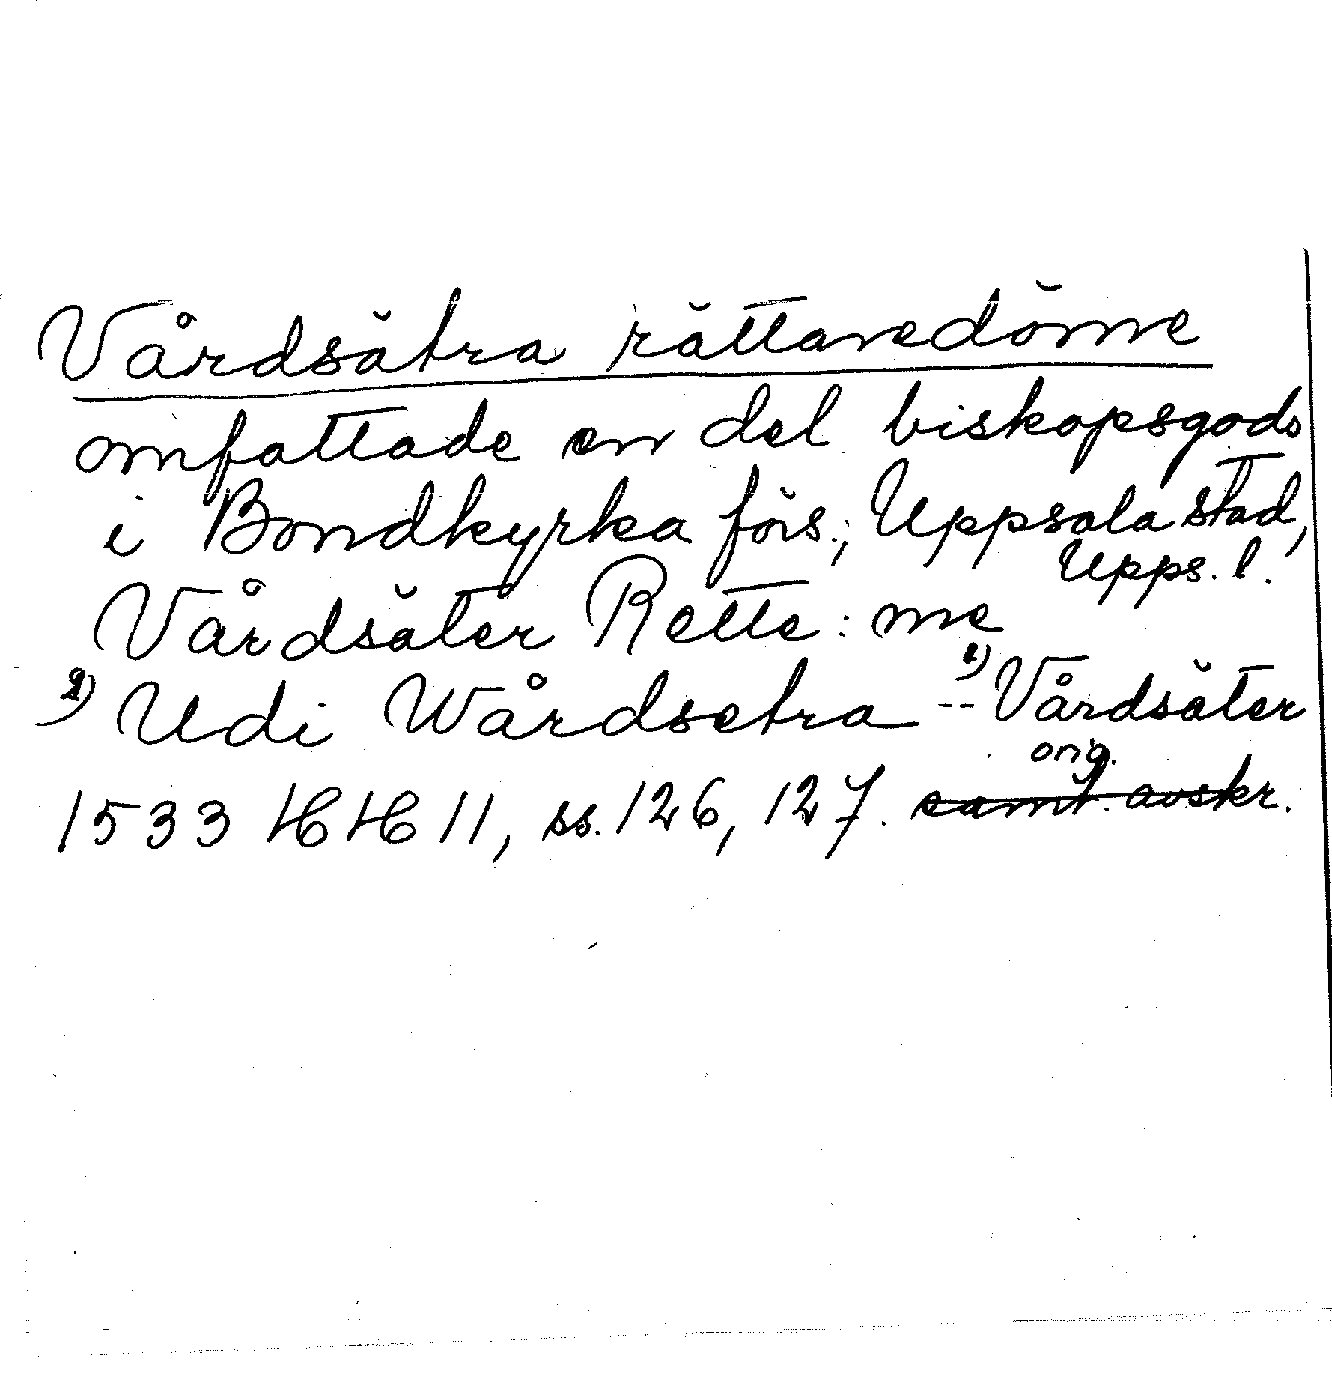 Vårdsätra rättaredöme
omfattade en del biskopsgods
i Bondkyrkaförs., Uppsala stad,
Upps. l.
Vårdsäter Rette: me
2) Udi Wårdsetra -- 1) Vårdsäter
orig.
1533 HH 11, ss. 126, 127. samt. avskr.